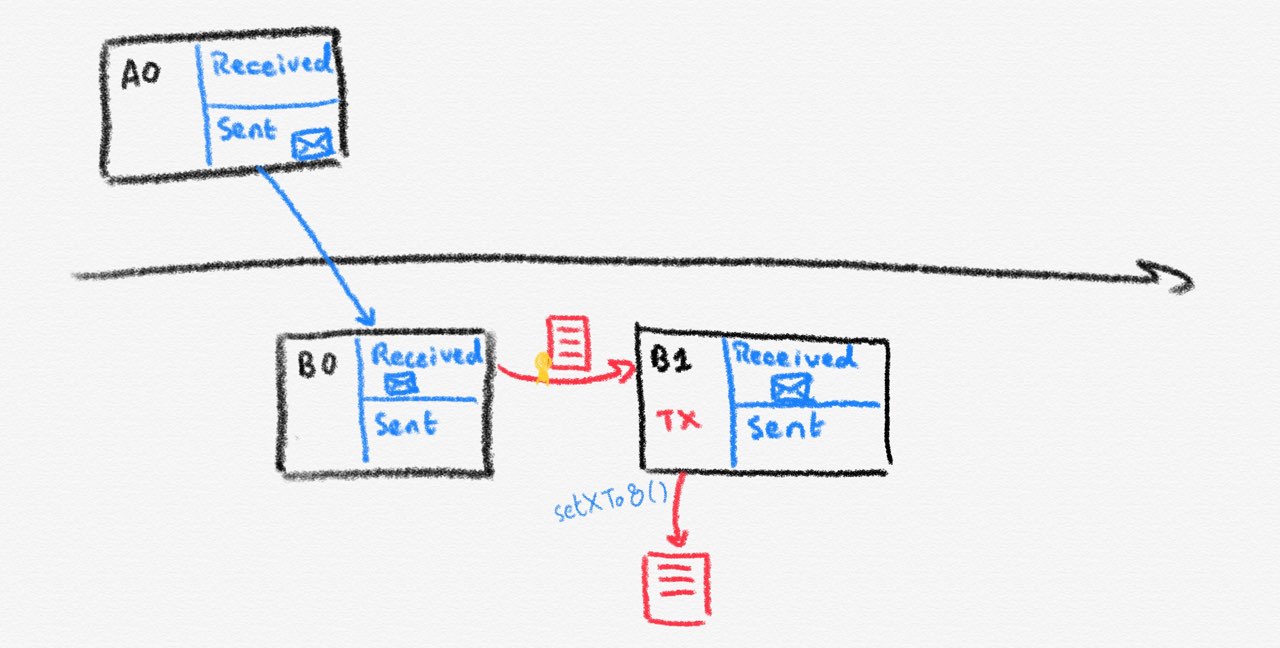 A0
Received
Sent
B0
Received
Sent
B1
TX
Received
Sent
setXTo8()